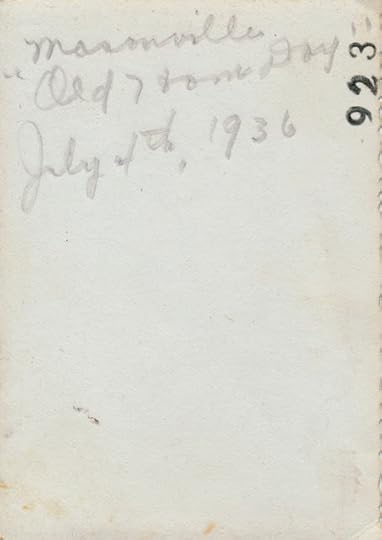 Masonville
"Old Home Day"
July 4th, 1936
923